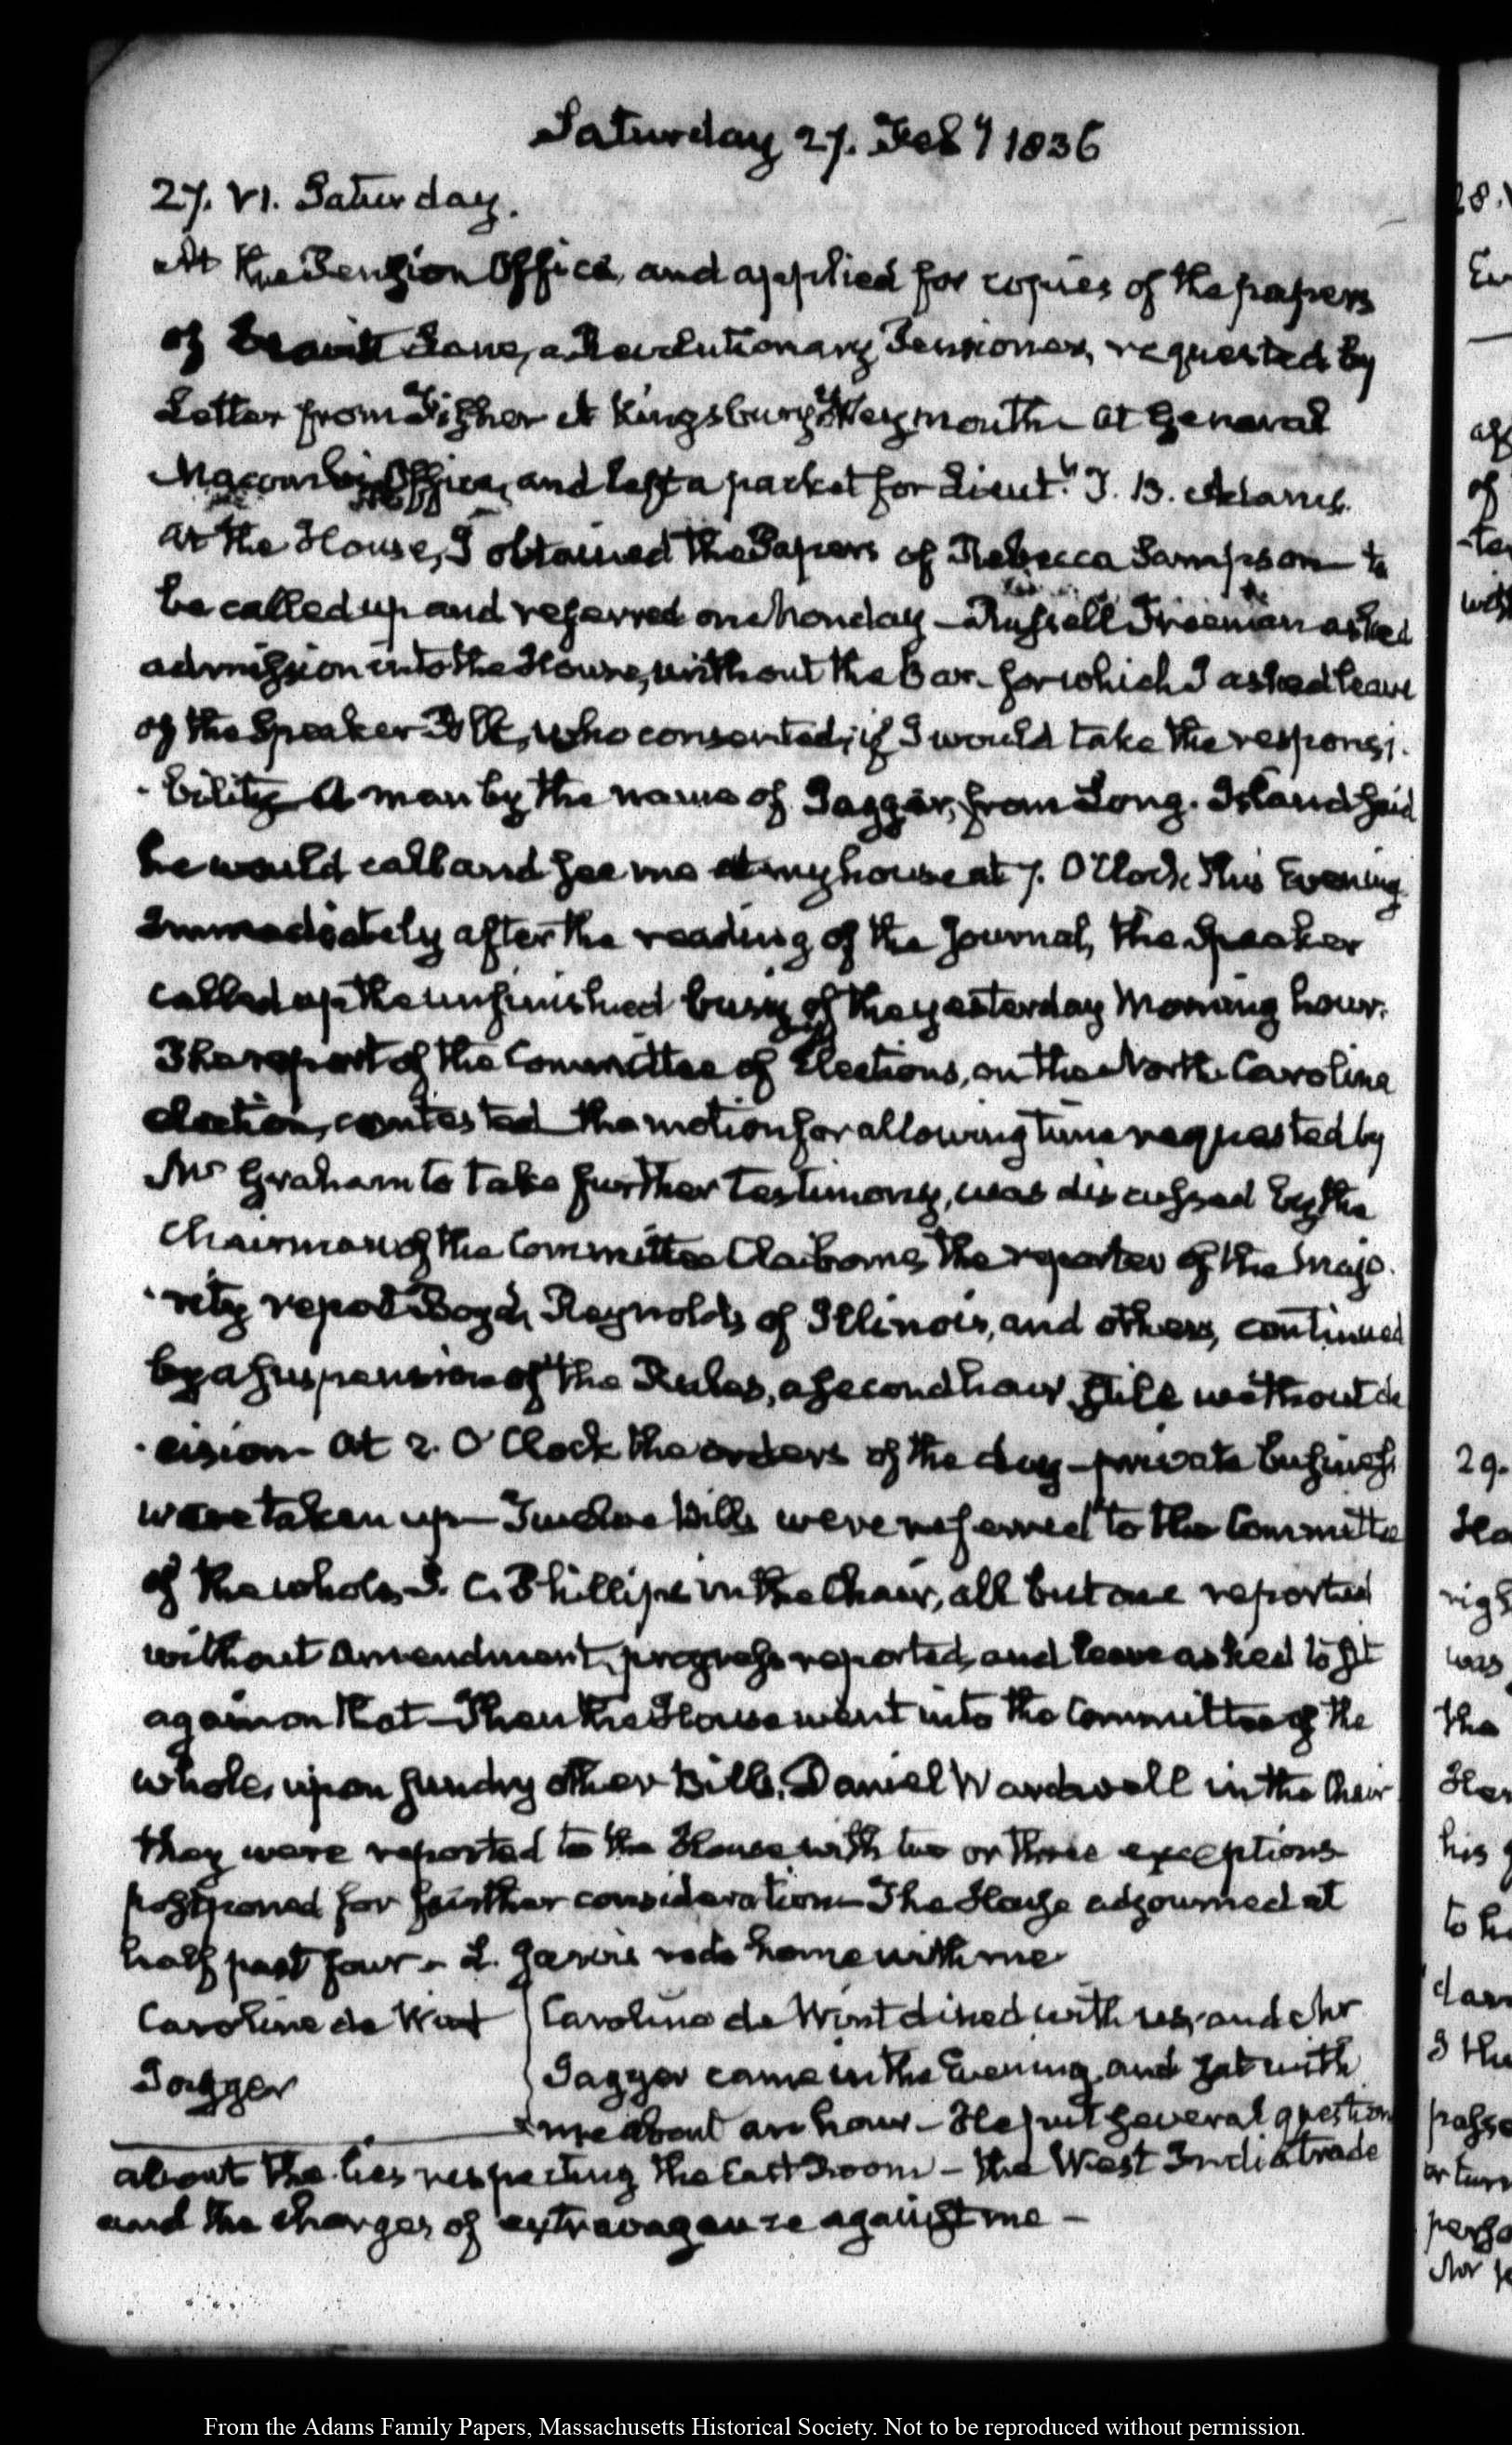 Saturday 27. Feby 1836
27. VI. Saturday.
At the Pension Office, and applied for copies of the papers
of Lane, a Revolutionary Pensioner, requested by
Letter from Fisher A Kingsbury of Weymouth - At General
Macomb's Office, and left a packet for Lieut.t J. B. Adams.
at the House, I obtained the Papers of Rebecca Sampson - to
be called up and referred on Monday - Russell Freeman asked
admission into the House, without the Bar - for which I asked leave
of the Speaker Polk, who consented, if I would take the responsi-
-bility - A man by the name of Jaggar, from Long-Island said
he would call and see me at my house at 7. O'Clock this Evening
Immediately after the reading of the Journal, the Speaker
called up the unfinished busi of the yesterday Morning hour.
The report of the Committee of Elections, on the North Carolina
election, contested - the motion for allowing time requested by
Mr Graham to take further testimony, was discussed by the
Chairman of the Committee Claiborne, the reporter of the majo-
-rity report Boyd, Reynolds of Illinois, and others, continued
by a suspension of the Rules, a second hour, still without de
-cision - At 2. O'Clock the orders of the day - private business
were taken up - Twelve bills were referred to the Committee
of the whole, S. C. Phillips in the Chair, all but one reported
without amendment, progress reported, and leave asked to sit
again on that - Then the House went into the Committee of the
whole, upon sundry other Bills, Daniel Wardwell in the Chair
they were reported to the House with two or three exceptions
postponed for further consideration - The House adjourned at
half past four - L. Jarvis rode home with me
Caroline de Wint
Jagger
Caroline de Wint dined with us, and Mr
Jagger came in the Evening, and sat with
me about an hour - He put several question
about the lies respecting the East Room - the West India trade
and the charges of extravagance against me -
From the Adams Family Papers, Massachusetts Historical Society. Not to be reproduced without permission.